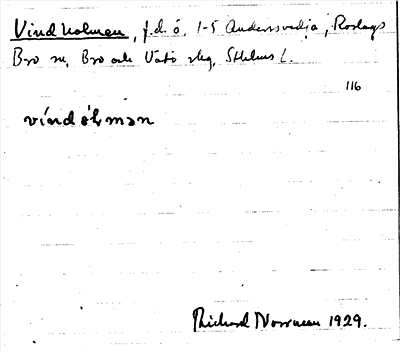 Vindholmen, f.d. ö, 1-5 Andersvedja, Roslags
Bro sn, Bro och Vätö slg, Sthlms l.
116
vindɷlmən
Richard Norrman 1929.